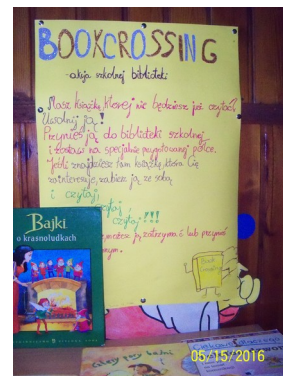 BOOKCROSSING
-akcja szkolnej biblioteki
Masz książkę, której nie będziesz już czytać?
Uwolnij ją!
Przynieś ją do biblioteki szkolnej
i zostaw na specjalnie przygotowanej półce.
Jeśli znajdziesz tam książkę, która Cię
zainteresuje, zabierz ją ze sobą
i czytaj,
czytaj,
czytaj!!!
możesz ją zatrzymać lub przynieść
Bajki
o krasnoludkach
05/15/2016